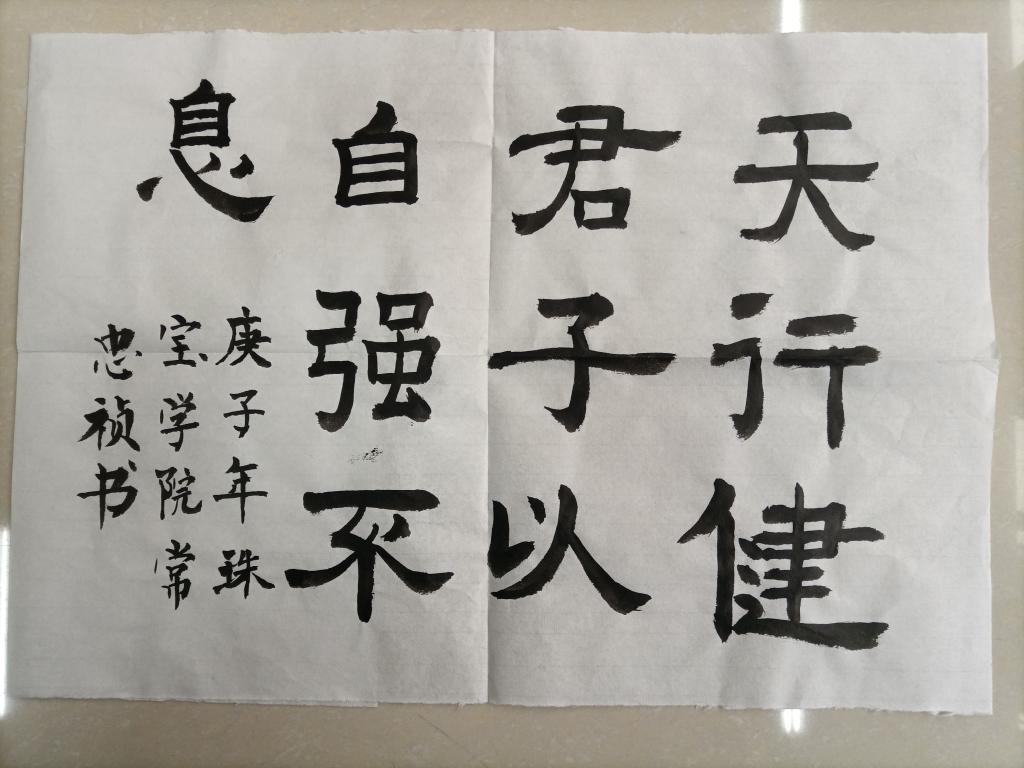 天行健
君子以
自强不
息
庚子年珠
宝学院常
忠祯书